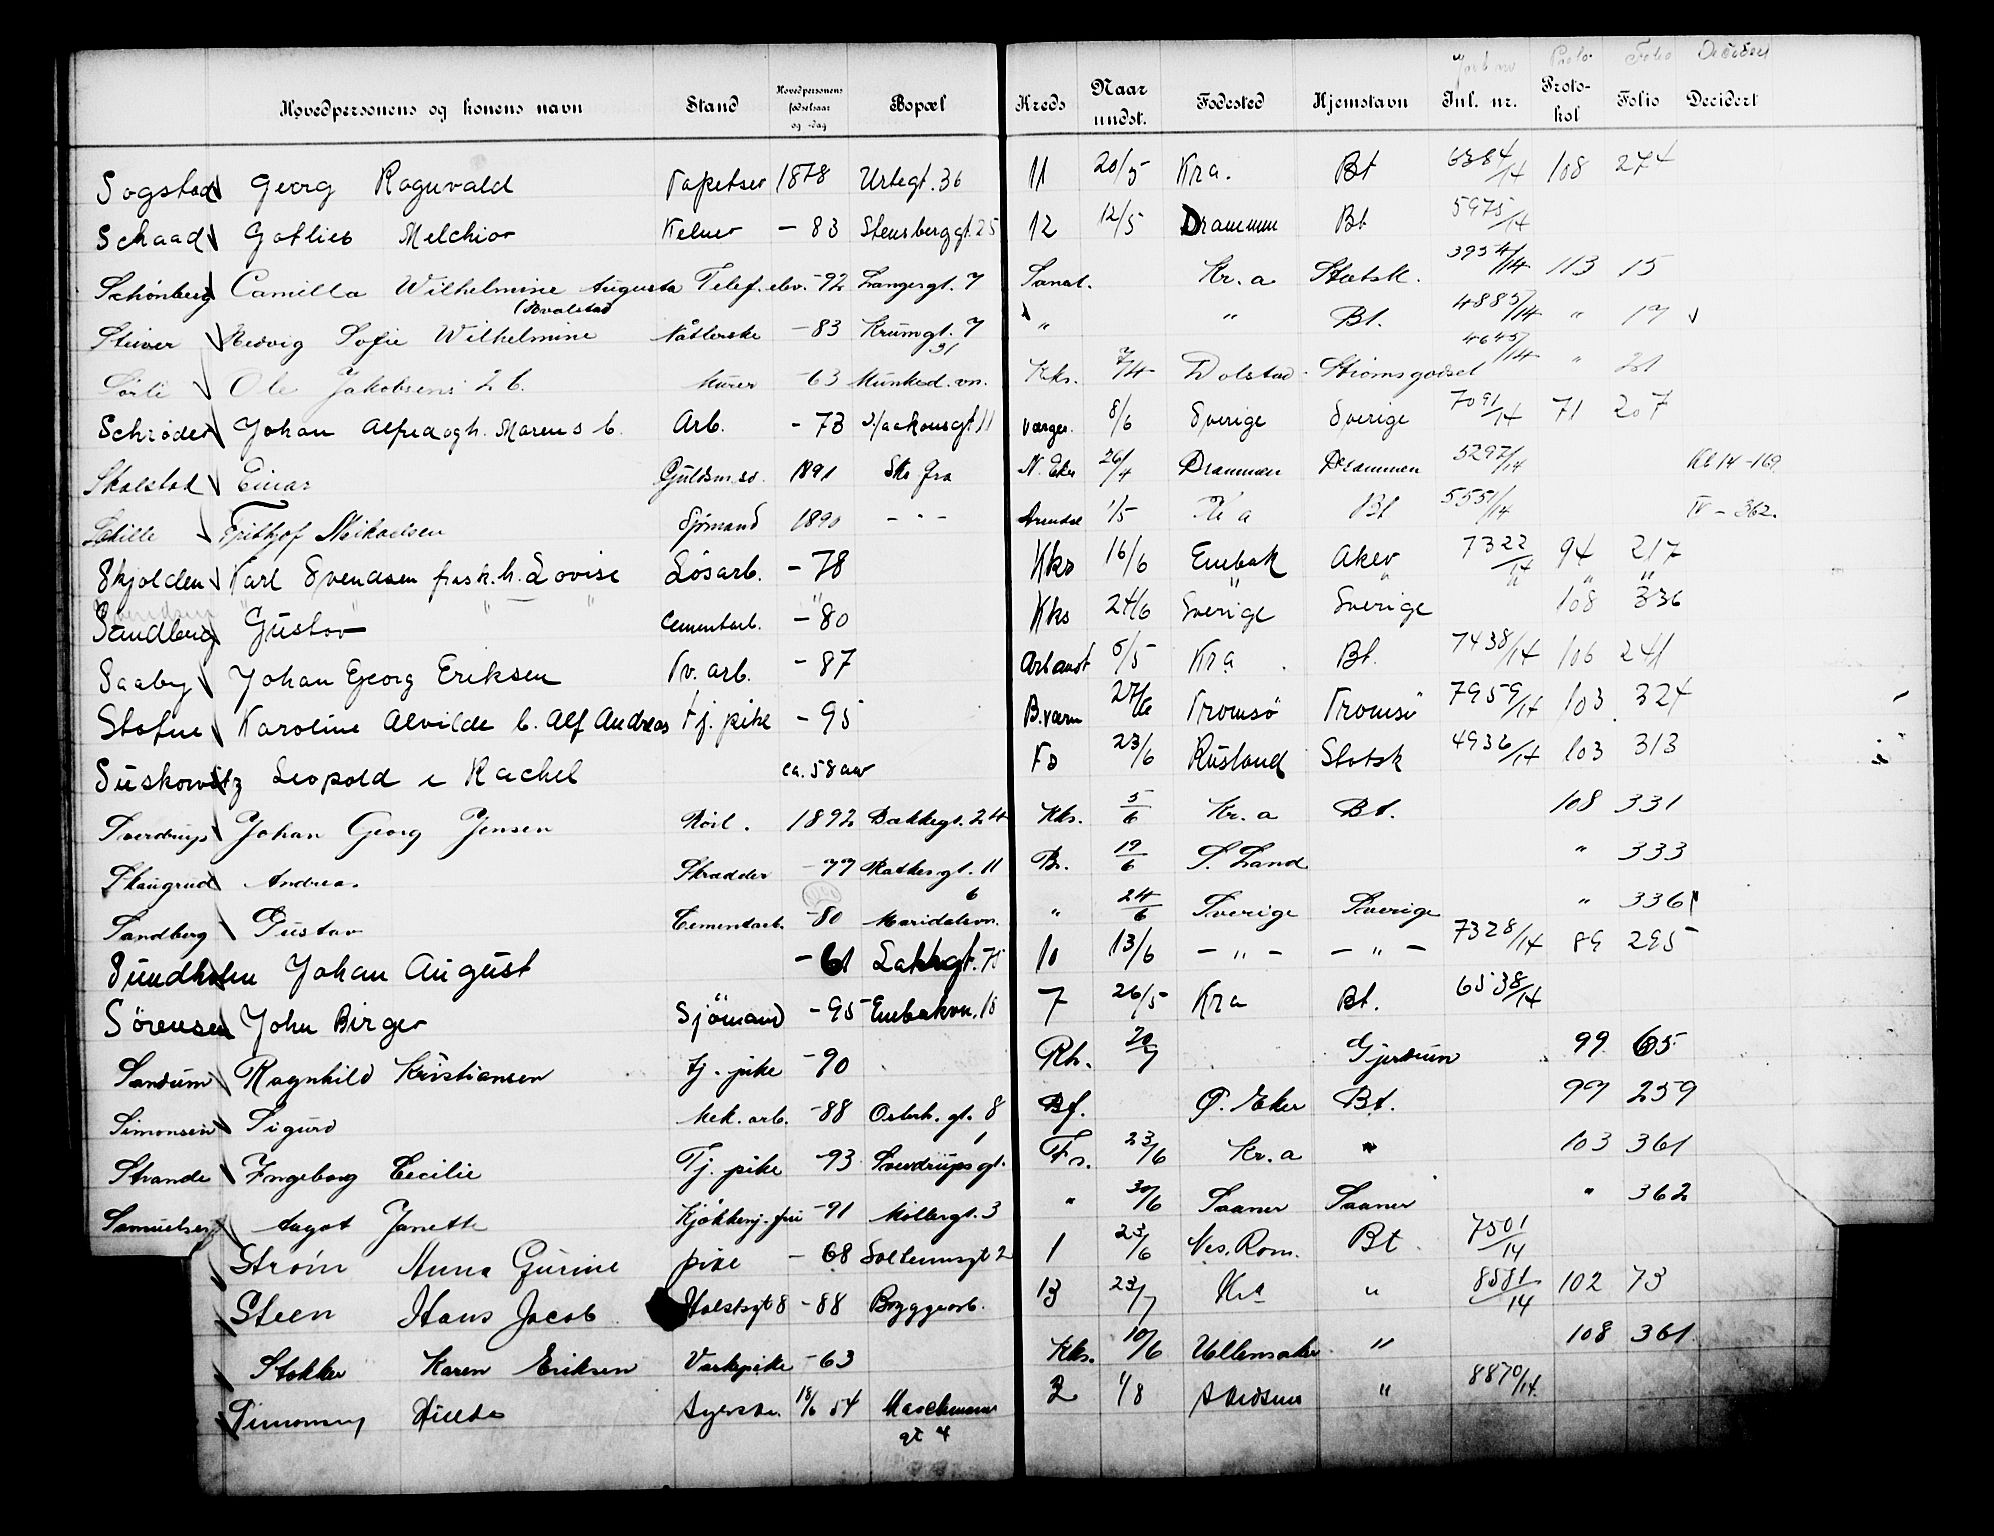 Jorb no Proto- Folio Decidert
Hovedpersonens og konens navn Stand Hovedpersonens fødselsaar og -dag Bopæl Kreds Naar undst. Fødested Hjemstavn Inl. nr. Proto-kol Folio Decidert
Sogstad Georg Ragnvald Tapetser 1878 Urtegt. 36 11 20/5 Kra. Bt 6384/14 108 274
Schaad Gotlieb Melchior Kelner - 83 Stensberggt. 25 12 12/5 Drammen Bt 5975/14
Schønberg Camilla Wilhelmine Augusta Telef. elev. -92 Langesgt. 7 Sanat. Kr.a Statsk. 3954/14 113 15
(Kvalstad
Stuver Hedvig Sofie Wilhelmine Nåtlerske -83 Krumgt. 7 " " Bt. 4885/14 " 17
Sörli Ole Jakobsens 2 b. Murer -63 Munked. vn. 31 Kks. 7/4 Dolstad Strømsgodset 4645/14 " 21
Schrøder Johan Alfred og h. Maren s b. Arb. - 73 Haakonsgt. 11 Varger. 8/6 Sverige Sverige 7091/14 71 207
Skalstad Einar Guldsm. sv. 1891 Sks fra N. Eker 26/4 Drammen Drammen 5297/14 Kl 14 - 169.
Schille Frithjof Mikaelsen Sjömand 1890 - " - Arendal 1/5 Kr a Bt 5551/14 IV - 362.
Skjolden Karl Svendsen frask. h. Lovise Løsarb. - 78 Kks 16/6 Enebak Aker 7322/14 94 217
Sandberg Gustav Cementarb. - 80 Kks 24/6 Sverige Sverige 108 336
Saaby Johan Georg Eriksen Tv. arb. - 87 Arb anst 5/5 Kra. Bt. 7438/14 106 241
Stofne Karoline Alvilde b. Alf Andreas tj. pike - 95 B. værn 27/6 Tromsö Tromsö 7959/14 103 324
Suskowitz Leopold e Rachel ca. 58 aar Fs 23/6 Rusland Statsk 4936/14 103 313
Sverdrup Johan Georg Jensen Rörl. 1892 Bakkegt. 24 Kks. 5/6 Kr. a Bt. 108 331
Skaugrud Andreas Skrædder -77 Rathkesgt. 11 Br. 19/6 S. Land " 333
Sandberg Gustav Cementarb. -80 Maridalsvn. 6 " 24/6 Sverige Sverige " 336
Sundholm Johan August - 61 Lakkgt. 75 10 13/6 - " - - " - 7328/14 89 295
Sörensen John Birger Sjömand - 95 Enebakvn. 18 7 26/5 Kra Bt. 6538/14
Sandum Ragnhild Kristiansen tj. pike -90 Rh. 20/7 Gjerdrum 99 65
Simonsen Sigurd Mek. arb. -88 Osterh. gt. 8 Bf. Ø. Eker Bt. 99 259
Strande Ingeborg Cecilie Tj. pike -93 Sverdrups gt. 1 Fs. 23/6 Kr. a " 103 361
Samuelsen Aagot Janette Kjøkkenj. -91 Møllergt. 3 " 30/6 Saaner Saaner " 362
Strøm Anna Gurine pike - 68 Soltunsgt 2 1 23/6 Nes. Rom. Bt 7501/14
Steen Hans Jacob Holstsgt 8 - 88 Bryggearb. 13 23/7 Kra " 8581/14 102 73
Stokker Karen Eriksen Vaskepike -63 Kks. 10/6 Ullensaker " 108 361
Simonsen Hulda Syerske. 18/6 54 Maschmanns gt 4 2 1/8 " 8870/14.